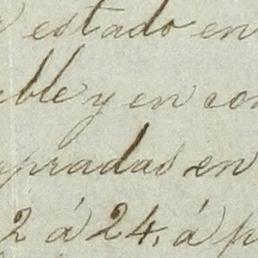 estado en
ble y en con
pradas en
2 á 24, á p